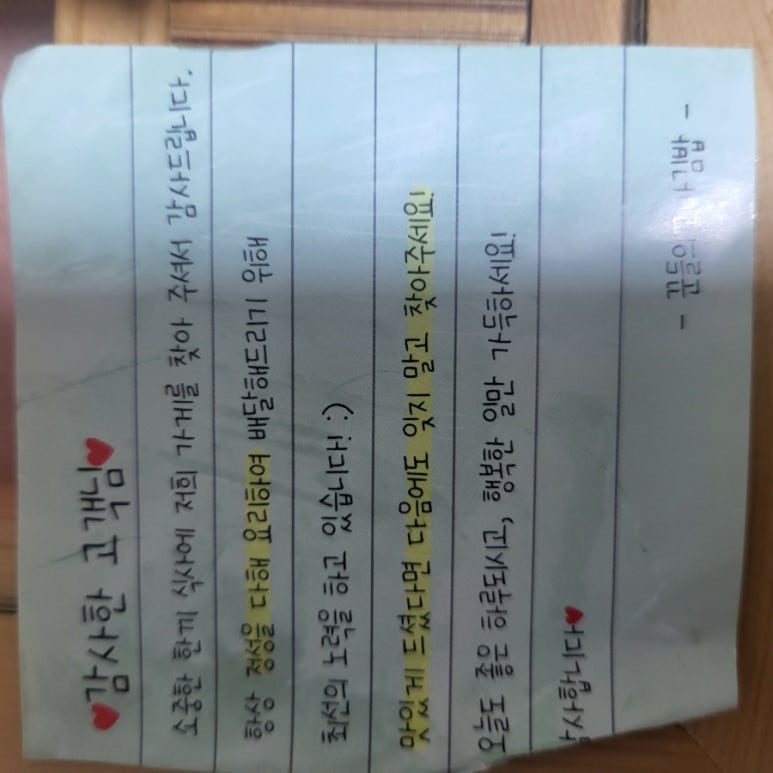 ♥감사한 고객님♥
소중한 한끼 식사에 저희 가게를 찾아 주셔서 감사드립니다.
항상 정성을 다해 요리하여 배달해드리기 위해
최선의 노력을 하고 있습니다! :)
맛있게 드셨다면 다음에도 잊지 말고 찾아주세요!
오늘도 좋은 하루되시고, 행복한 일만 가득하세요!